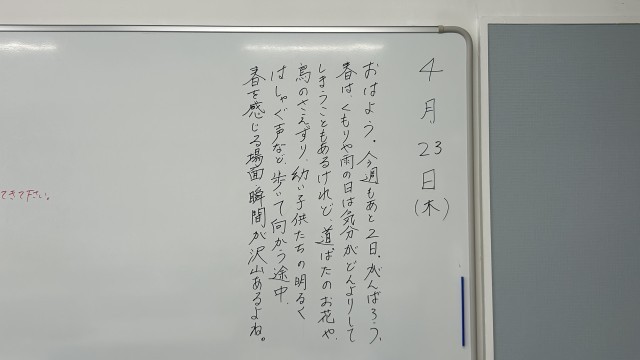 4月23日(木)
おはよう。今週もあと2日、がんばろう。
春は、くもりや雨の日は気分がどんよりして
しまうこともあるけれど、道ばたのお花や、
鳥のさえずり、幼い子供たちの明るく
はしゃぐ声など、歩いて向かう途中、
春を感じる場面、瞬間が沢山あるよね。
できて下さい。